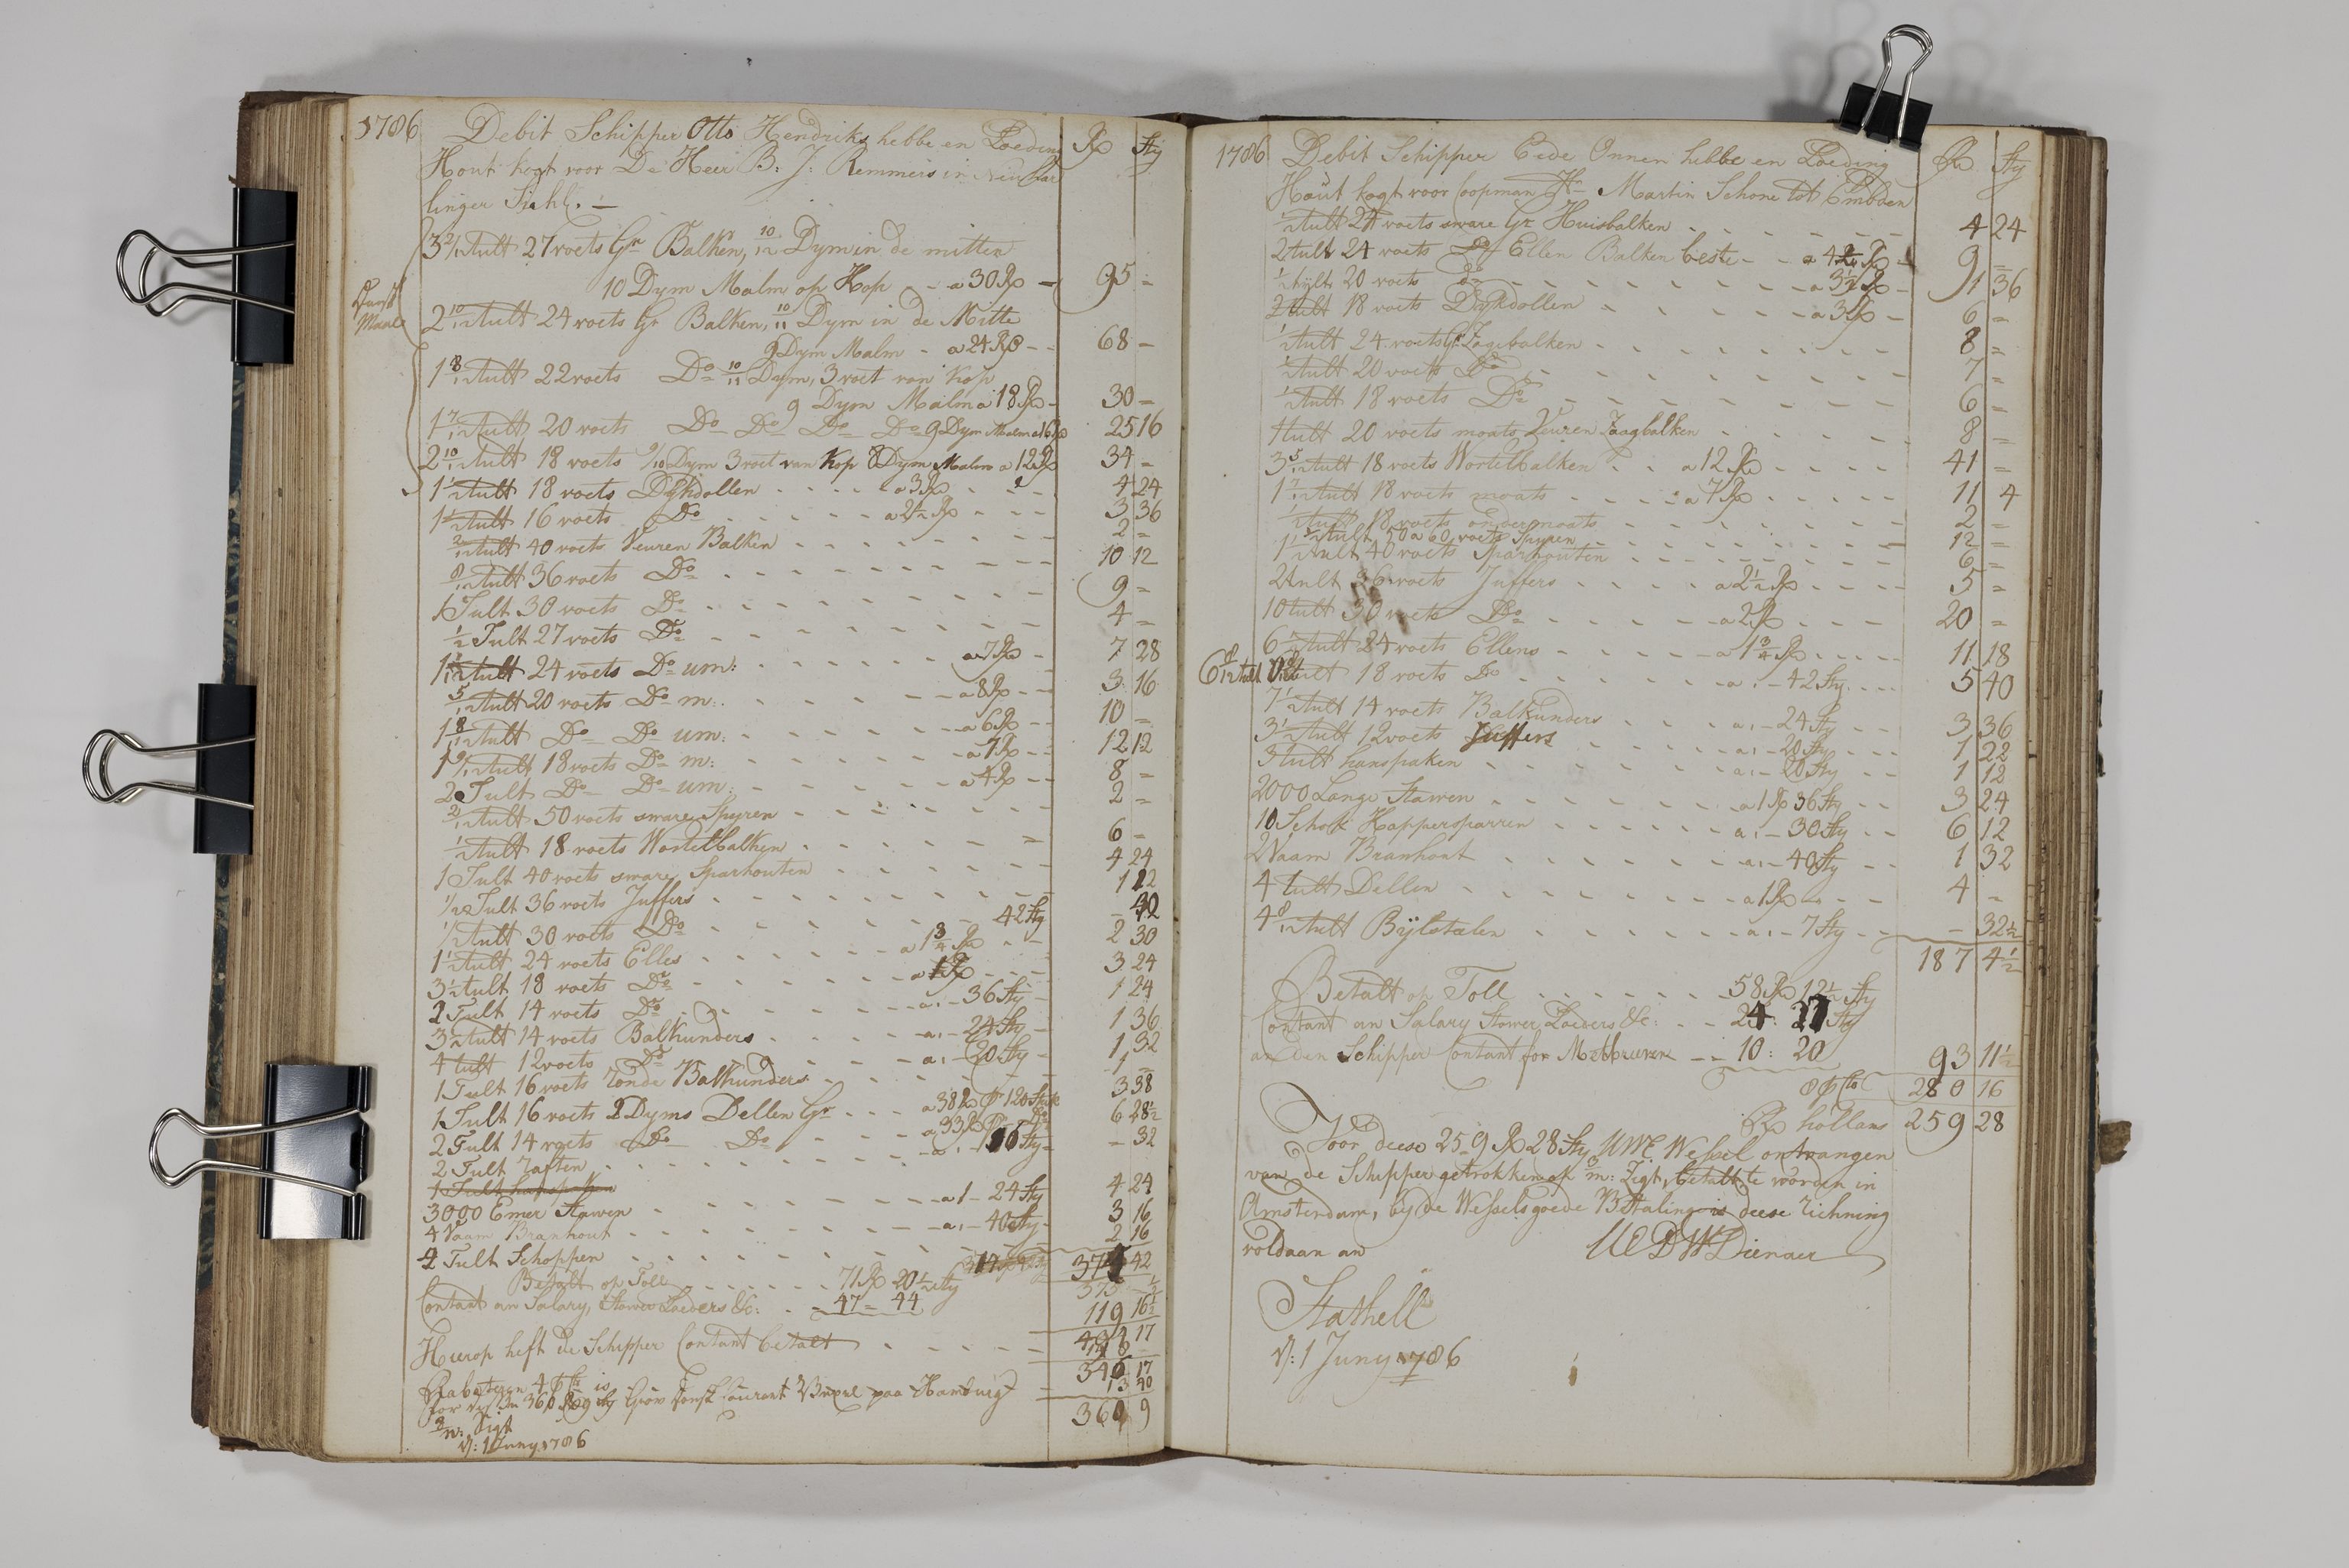 1786 Debit Schipper Otto Hendriks hebbe en Loeding Rx Sty
Hout kogt voor De Heer B: J: Remmers in
linger Siehl. —
3 2/12 tult 27 voets Gr Balken, 10/12 Dym in de mitten
10 Dym Malm op Kop - a 30 Rx - 95 =
2 10/12 tult 24 voets Gr Balken, 10/11 Dym in de Mitte
9 Dym Malm - a 24 Rx - - 68 -
1 8/12 tult 22 voets Do 10/11 Dym, 3 voet van Kop
9 Dym Malm a 18 Rx - 30 =
1 7/12 tult 20 voets Do Do Do Do 9 Dym Malm a 16 Rx 25 16
2 10/12 tult 18 voets 9/10 Dym 3 voet van Kop 8 Dym Malm a 12 Rx 34 -
1 1/2 tult 18 voets Dykdollen - - - - a 3 Rx - - - 4 24
1 1/2 tult 16 voets Do - - - - a 2 1/2 Rx - - - 3 36
2/12 tult 40 voets Veuren Balken - - - - 2 =
9/12 tult 36 voets Do - - - - 10 12
1 Tult 30 voets Do - - - - 9 =
1/2 Tult 27 voets Do - - - - 4 =
1 1/12 tult 24 voets Do um: - - - - a 7 Rx - 7 28
5/12 tult 20 voets Do m: - - - - a 8 Rx - - 3 16
1 8/12 tult Do Do um: - - - - a 6 Rx - - 10 =
1 9/12 tult 18 voets Do m: - - - - a 7 Rx - - 12 12
2 Tult Do Do um: - - - - a 4 Rx - - 8 =
2/12 tult 50 voets sware Spyren - - - - 2 =
1/2 tult 18 voets Wortelbalken - - - - 6 -
1 Tult 40 voets sware Sparhouten - - - - 4 24
1/2 Tult 36 voets Juffers - - - - 1 12
1/2 tult 30 voets Do - - - - 42 Sty - 42
1 1/2 tult 24 voets Elles - - - - a 1 3/4 Rx - - 2 30
3 1/2 tult 18 voets Do - - - - a 1 Rx - - - 3 24
2 Tult 14 voets Do - - - - a: - 36 Sty - 1 24
3 1/2 tult 14 voets Balkunders - - - - a: - 24 Sty - 1 36
4 tult 12 voets Do - - - - a: - 20 Sty - 1 32
1 Tult 16 voets ronde Balkunders - - - - 1 -
1 Tult 16 voets 2 Dyms Dellen Gr - - - a 38 Rx pr 120 Stuk 3 38
2 Tult 14 voets Do Do - - - - a 33 Rx pr Do 6 28 1/2
2 Tult Taften - - - - a: - 16 Sty - - 32
1 Tult hanspaken
3000 Emer Stawen - - - - a 1 - 24 Sty 4 24
4 Vaam Branhout - - - - a: - 40 Sty - 3 16
4 Tult Schoppen - - - - 2 16
42
Betalt op Toll - - - - 71 Rx 20 1/2 Sty
Contant an Salary, Stower Loeders &c: - 47 = 44 119 16 1/2
17
Hierop heft de Schipper Contant betalt - - - -
17
13 40
Courant paa Hamburg 9
Sigt
d: 1 Juny 1786
1786 Debit Schipper Eede Onnen hebbe en Loeding Rx Sty
Hout kogt voor Coopman Hr Martin Schone tot Embden
1/2 tult 24 voets sware Gr Huisbalken - - - - 4 24
2 tult 24 voets Do Ellen Balken beste - - a 4 1/2 Rx - 9 =
1/2 tylt 20 voets do - - - - a 3 1/2 Rx - 1 36
2 tult 18 voets Dykdollen - - - - a 3 Rx - 6 =
1/2 tult 24 voets Gr Zagebalken - - - - 8 =
1/2 tult 20 voets Do - - - - 7 =
1/2 tult 18 voets Do - - - - 6 =
1 tult 20 voets moats Veuren Zaagbalken - - - - 8 =
3 5/12 tult 18 voets Wortelbalken - - a 12 Rx - - - 41 =
1 7/12 tult 18 voets moats - - - a 7 Rx - - - 11 4
1/2 tult 18 voets ondermoats - - - - 2 =
1/2 tult 50 a 60 voets Spyren - - - - 12 =
1 1/2 tult 40 voets Sparhouten - - - - 6 =
2 tult 36 voets Juffers - - - - a 2 1/2 Rx - - - 5 =
10 tult 30 voets Do - - - - a 2 Rx - - - 20 =
6 1/2 tult 24 voets Ellens - - - - a 1 3/4 Rx - - - 11 18
6 8/12 tult tult 18 voets Do - - - - a: - 42 Sty - - - 5 40
7 1/2 tult 14 voets Balkunders - - - - a: - 24 Sty - - 3 36
3 1/2 tult 12 voets Juffers - - - - a: - 20 Sty - - 1 22
3 tult hanspaken - - - - a: - 20 Sty - - 1 12
2000 Lange Stawen - - - - a 1 Rx 36 Sty - - 3 24
10 Schok Hoppersparren - - - - a: - 30 Sty - - 6 12
2 Vaam Branhout - - - - a: - 40 Sty - - 1 32
4 tult Dellen - - - - a 1 Rx - - - 4 -
4 8/12 tult Byletalen - - - - a: - 7 Sty - - - 32 1/2
187 4 1/2
Betalt op Toll - - - - 58 Rx 12 1/2 Sty
Contant an Salary Stower, Loeders &c: - - 24: 27 Sty
an den Schipper Contant for - - 10: 20 93 11 1/2
8 p Cto 280 16
Rx hollans 259 28
Voor deese 259 Rx 28 Sty UWE Wessel ontvangen
van de Schipper getrokken op 3/m: Zigt, betalt te worden in
Amsterdam, by de Wessels goede Betaling is deese Richning
voldaan an UEDWDienaer
Stathell
d: 1 Juny 1786